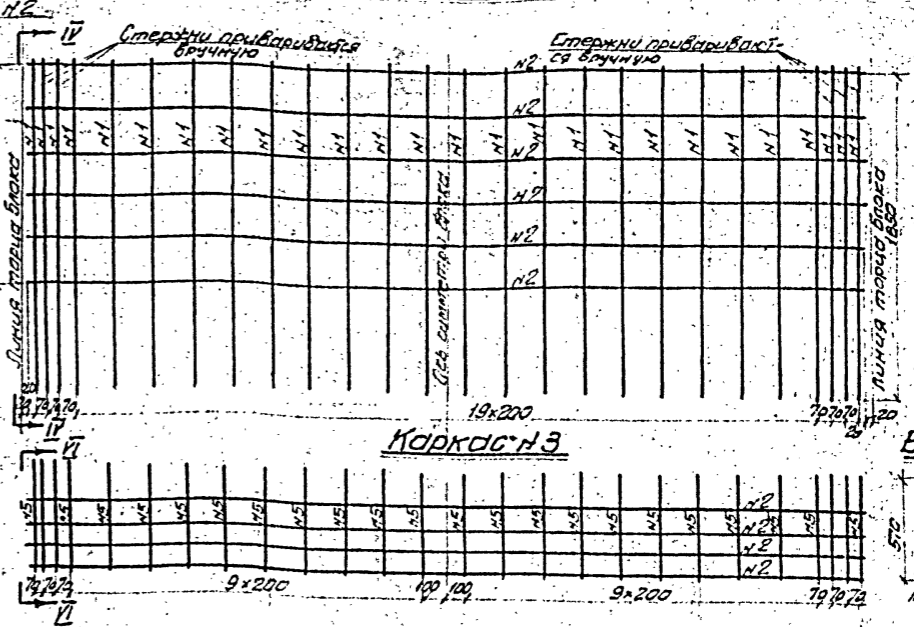 N2
IV
Стержни привариваются
вручную
Стержни приваривают-
ся вручную
N2
N2
N1 N1 N1 N1 N1 N1 N1 N1 N1 N1 N1 N1 N1 N1 N1 N1 N1 N1 N1 N1 N1 N1
N2
N2
N2
N2
Линия торца блока
Ось симметрии блока
Линия торца блока
1850
20
70 70 70
19×200
70 70 70
20
20
IV
VI
Каркас N3
N5 N5 N5 N5 N5 N5 N5 N5 N5 N5 N5 N5 N5 N5 N5 N5 N5 N5
N2
N2
N2
N2
510
70 70 70
9×200
100 100
9×200
70 70 70
VI